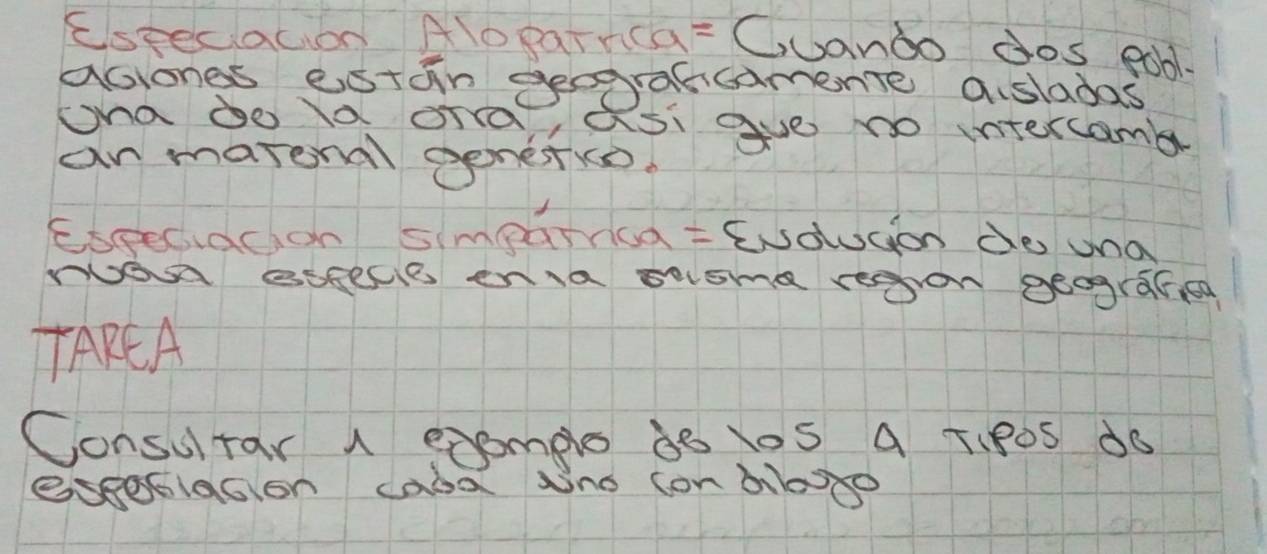 Especiacion Alopatrica = Cuando dos pobl-
aciones están geograficamente aisladas
una de la otra, asi que no intercambi
an material genético.
Especiacion simpátrica = Evolución de una
nueva especie en la misma region geográfica,
TAREA
Consultar 1 ejemplo de los 4 tipos de
especiacion cada uno con dibujo